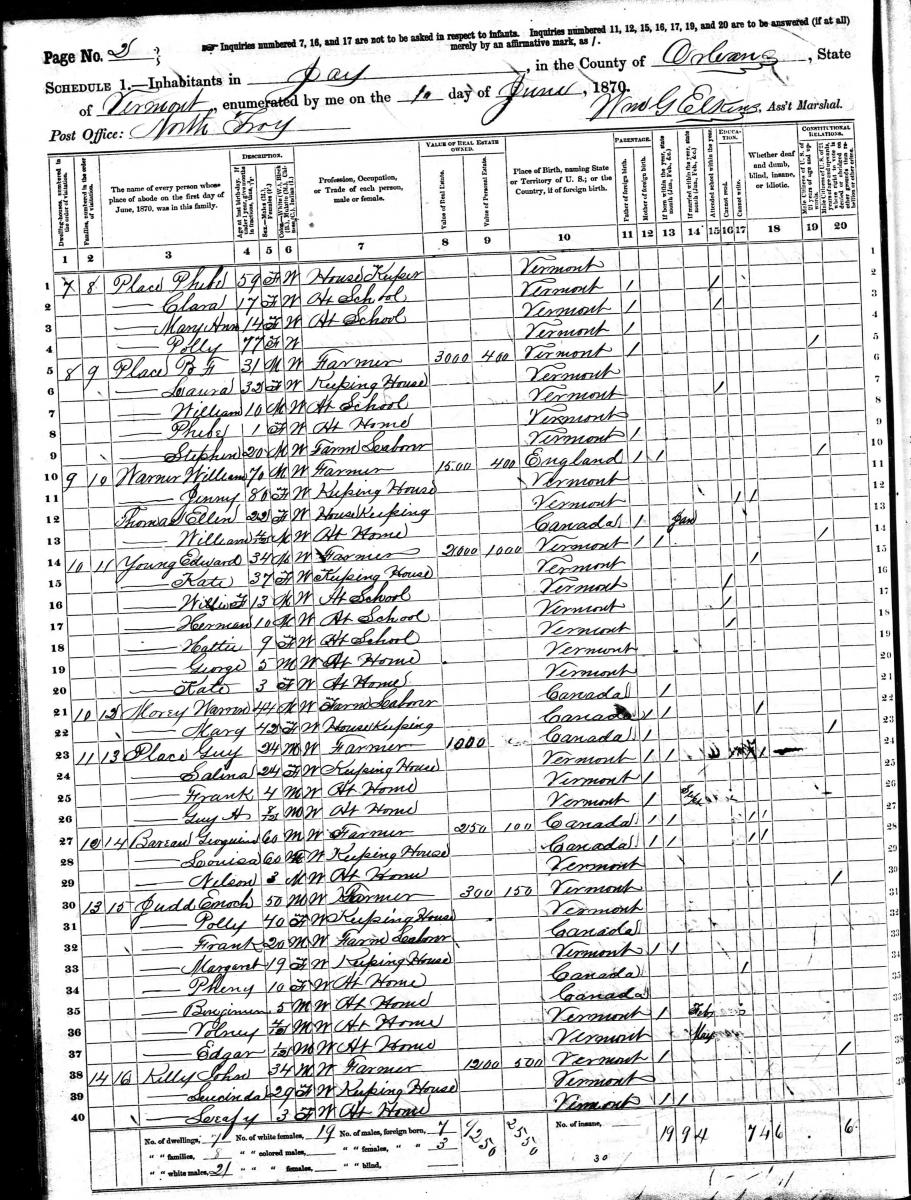 Page No. 2
Inquiries numbered 7, 16, and 17 are not to be asked in respect to infants. Inquiries numbered 11, 12, 15, 16, 17, 19, and 20 are to be answered (if at all) merely by an affirmative mark, as /.
SCHEDULE 1.—Inhabitants in Jay, in the County of Orleans, State
of Vermont, enumerated by me on the 1 day of June, 1870.
Post Office: North Troy
Wm G Elkins, Ass't Marshal.
Dwelling-houses, numbered in the order of visitation.
Families, numbered in the order of visitation.
The name of every person whose place of abode on the first day of June, 1870, was in this family.
DESCRIPTION.
Profession, Occupation, or Trade of each person, male or female.
VALUE OF REAL ESTATE OWNED.
Value of Real Estate.
Value of Personal Estate.
Place of Birth, naming State or Territory of U. S.; or the Country, if of foreign birth.
PARENTAGE.
Father of foreign birth.
Mother of foreign birth.
Attended school within the year.
EDUCATION.
Cannot read.
Cannot write.
Whether deaf and dumb, blind, insane, or idiotic.
CONSTITUTIONAL RELATIONS.
1 2 3 4 5 6 7 8 9 10 11 12 13 14 15 16 17 18 19 20
1 7 8 Place Phebe 59 F W House Keeper Vermont
2 — Clara 17 F W At School Vermont / /
3 — Mary Ann 14 F W At School Vermont / /
4 — Polly 77 F W Vermont /
5 8 9 Place B F 31 M W Farmer 3000 400 Vermont / /
6 — Laura 32 F W Keeping House Vermont
7 — William 10 M W At School Vermont /
8 — Phebe 1 F W At Home Vermont
9 — Stephen 20 M W Farm Labour Vermont /
10 9 10 Warner William 70 M W Farmer 1500 400 England / / /
11 — Jenny 80 F W Keeping House Vermont
12 Thomas Ellen 22 F W House Keeping Vermont / /
13 — William M W At Home Canada / Jan
14 10 11 Young Edward 34 M W Farmer 2000 1000 Vermont / / /
15 — Kate 37 F W Keeping House Vermont /
16 — Willie F 13 M W At School Vermont /
17 — Herman 10 M W At School Vermont /
18 — Hattie 9 F W At School Vermont /
19 — George 5 M W At Home Vermont
20 — Kate 3 F W At Home Vermont
21 10 12 Morey Warren 44 M W Farm Labour Canada /
22 — Mary 42 F W House Keeping Canada / / /
23 11 13 Place Guy 24 M W Farmer 1000 Canada / /
24 — Salina 24 F W Keeping House Vermont / /
25 — Frank 4 M W At Home Vermont /
26 — Guy A 8/12 M W At Home Vermont /
27 12 14 Bareau 60 M W Farmer 250 100 Canada / / / /
28 — Louisa 60 W Keeping House Canada / / / /
29 — Nelson 3 M W At Home Vermont
30 13 15 Judd Enoch 50 M W Farmer 300 150 Vermont /
31 — Polly 40 F W Keeping House Vermont
32 Frank 20 M W Farm Labour Canada
33 — Margaret 19 F W Keeping House Vermont / /
34 — Pheny 10 F W At Home Canada /
35 — Benjimen 5 M W At Home Canada
36 — Volney M W At Home Vermont / Feb
37 — Edgar 1/12 M W At Home Vermont May
38 14 16 Kelly John 34 M W Farmer 1200 500 Vermont / /
39 — Lucinda 29 F W Keeping House Vermont
40 — 3 F W At Home Vermont / /
No. of dwellings, 7 No. of white females, 19 No. of males, foreign born, 7 9250 2550 No. of insane, 19 9 4 7 4 6 6
" " families, 8 " " colored males, " " females, " " 3
" " white males, 21 " " " females, " " blind, 30